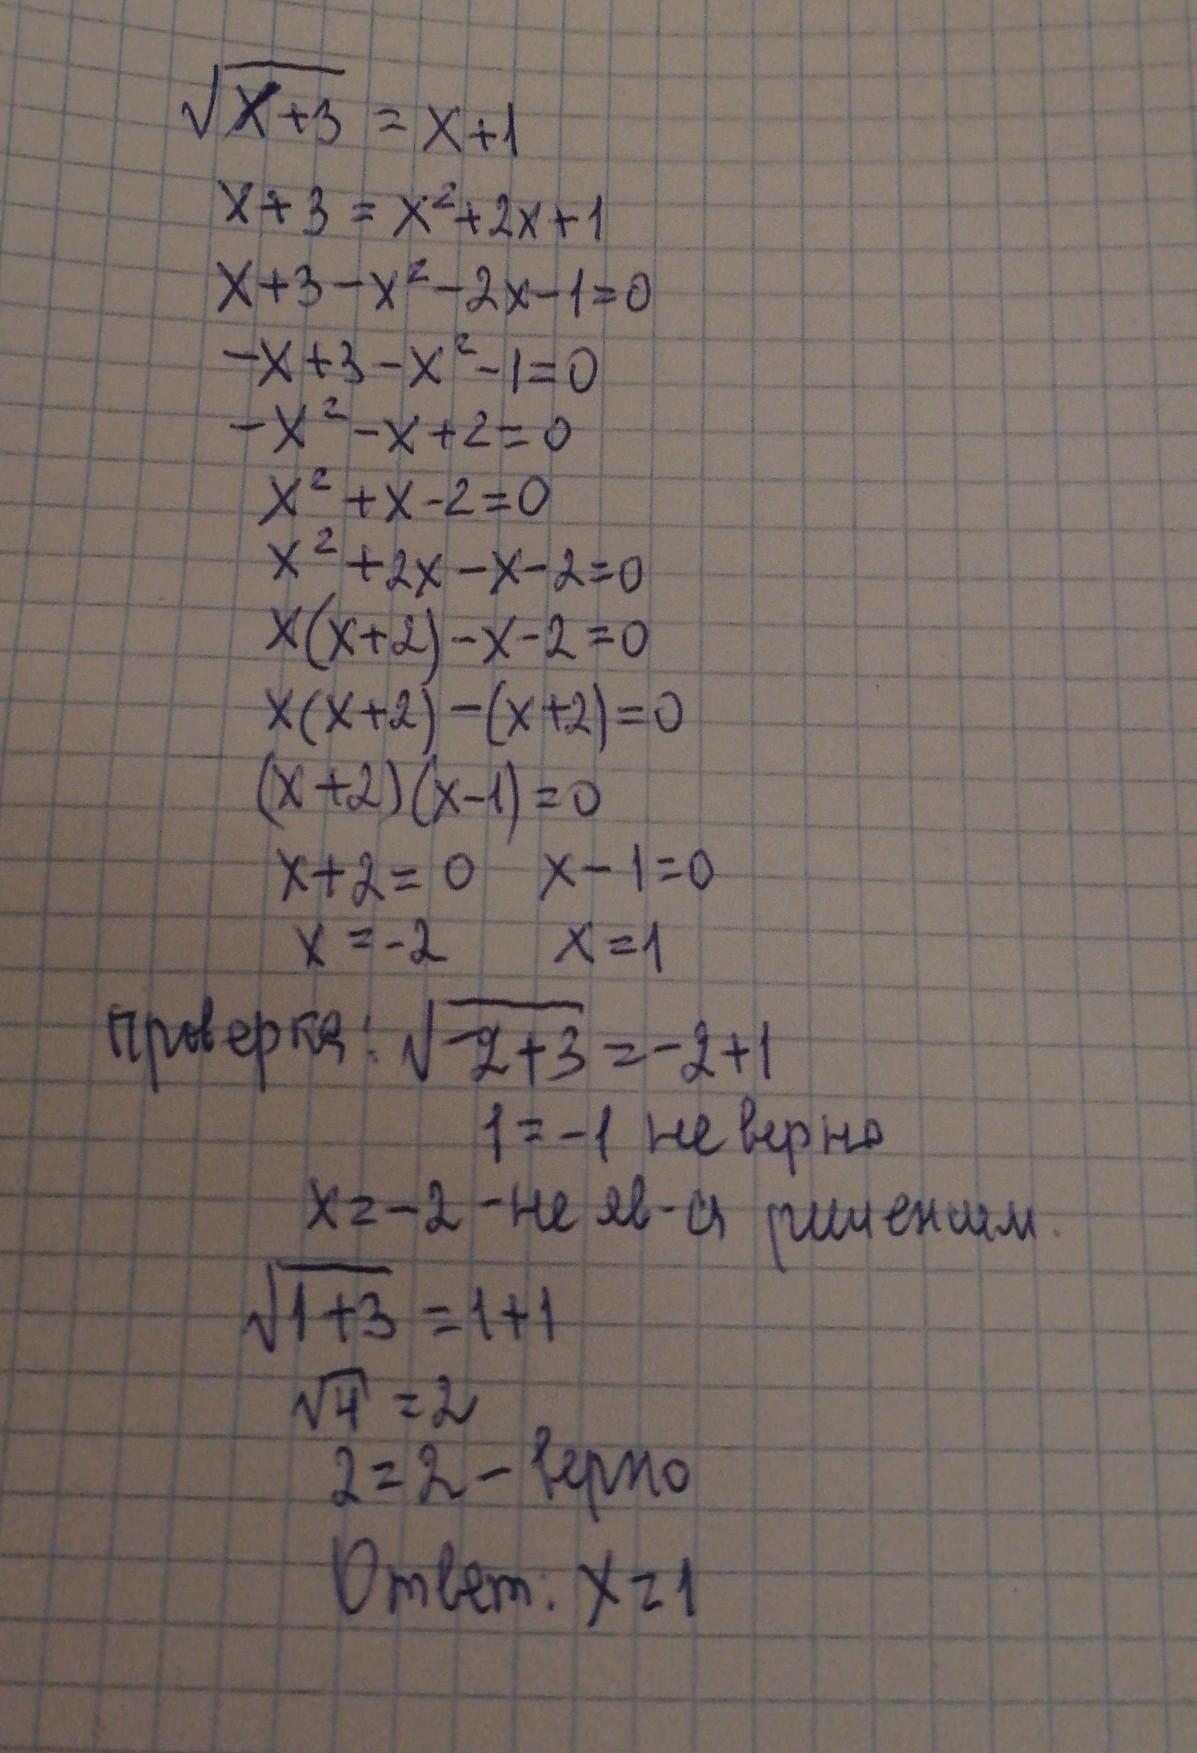 √x+3 = x+1
x+3 = x²+2x+1
x+3-x²-2x-1=0
-x+3-x²-1=0
-x²-x+2=0
x²+x-2=0
x²+2x-x-2=0
x(x+2)-x-2=0
x(x+2)-(x+2)=0
(x+2)(x-1)=0
x+2=0 x-1=0
x=-2 x=1
проверка: √-2+3 = -2+1
1=-1 не верно
x=-2 - не яв-ся решением.
√1+3 = 1+1
√4 = 2
2=2 - верно
Ответ: x=1